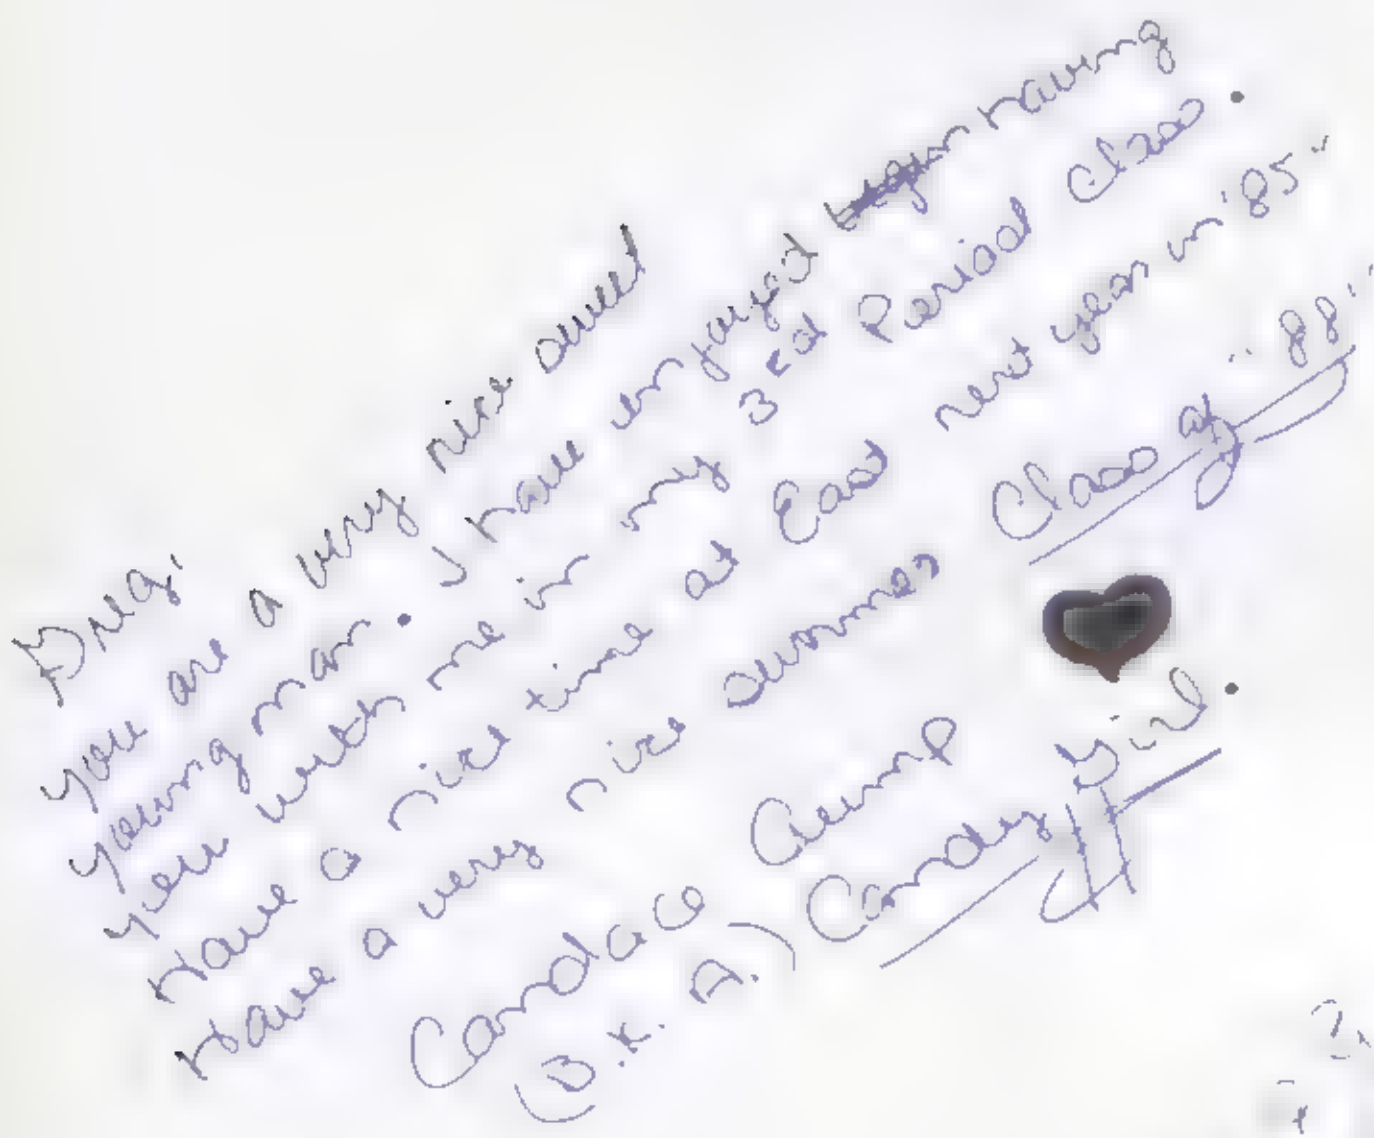 Greg,
you are a very nice sweet
young man. I have enjoyed having
you with me in my 3rd Period Class.
Have a nice time at East next year in '85"
Have a very nice summer
Candace Crump
(B.K.A.) Candy Girl.
Class of "88"